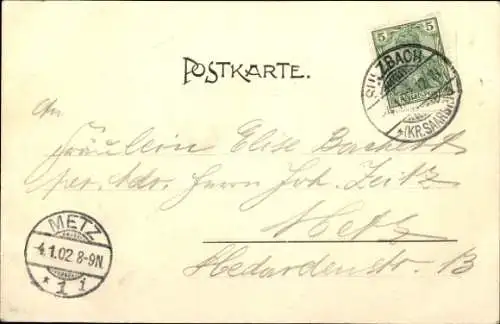 5
SULZBACH
*(KR.SAARBR.)
POSTKARTE.
An
Fräulein Elise
per. Adr. Herrn Joh. Zeitz
Metz
Medardenstr. 13
METZ
4.1.02 8-9N.
* 1 i